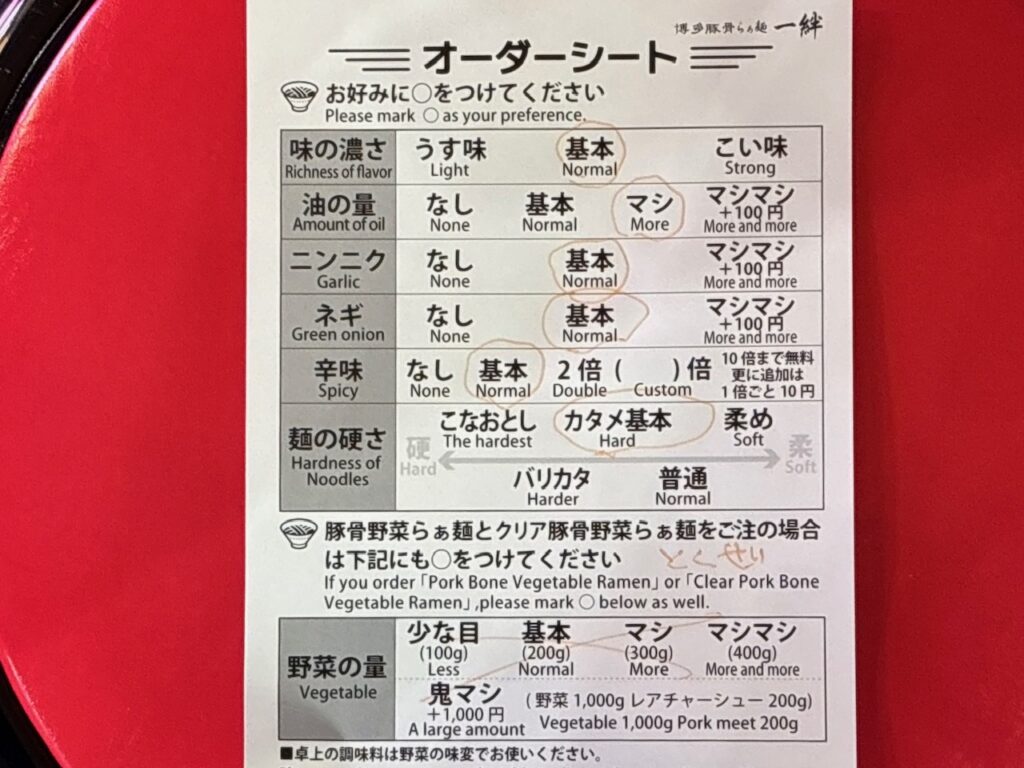 博多豚骨らぁ麺 一絆
オーダーシート
お好みに○をつけてください
Please mark ○ as your preference.
味の濃さ うす味 基本 こい味
Richness of flavor Light Normal Strong
油の量 なし 基本 マシ マシマシ
+100円
Amount of oil None Normal More More and more
ニンニク なし 基本 マシマシ
+100円
Garlic None Normal More and more
ネギ なし 基本 マシマシ
+100円
Green onion None Normal More and more
辛味 なし 基本 2倍 ( )倍 10倍まで無料
更に追加は
Spicy None Normal Double Custom 1倍ごと10円
麺の硬さ こなおとし カタメ基本 柔め
Hardness of Noodles The hardest Hard Soft
硬 柔
Hard Soft
バリカタ 普通
Harder Normal
豚骨野菜らぁ麺とクリア豚骨野菜らぁ麺をご注の場合
は下記にも○をつけてください
If you order「Pork Bone Vegetable Ramen」or「Clear Pork Bone
Vegetable Ramen」,please mark ○ below as well.
野菜の量 少な目 基本 マシ マシマシ
(100g) (200g) (300g) (400g)
Vegetable Less Normal More More and more
鬼マシ (野菜 1,000g レアチャーシュー 200g)
+1,000円 Vegetable 1,000g Pork meet 200g
A large amount
■卓上の調味料は野菜の味変でお使いください。